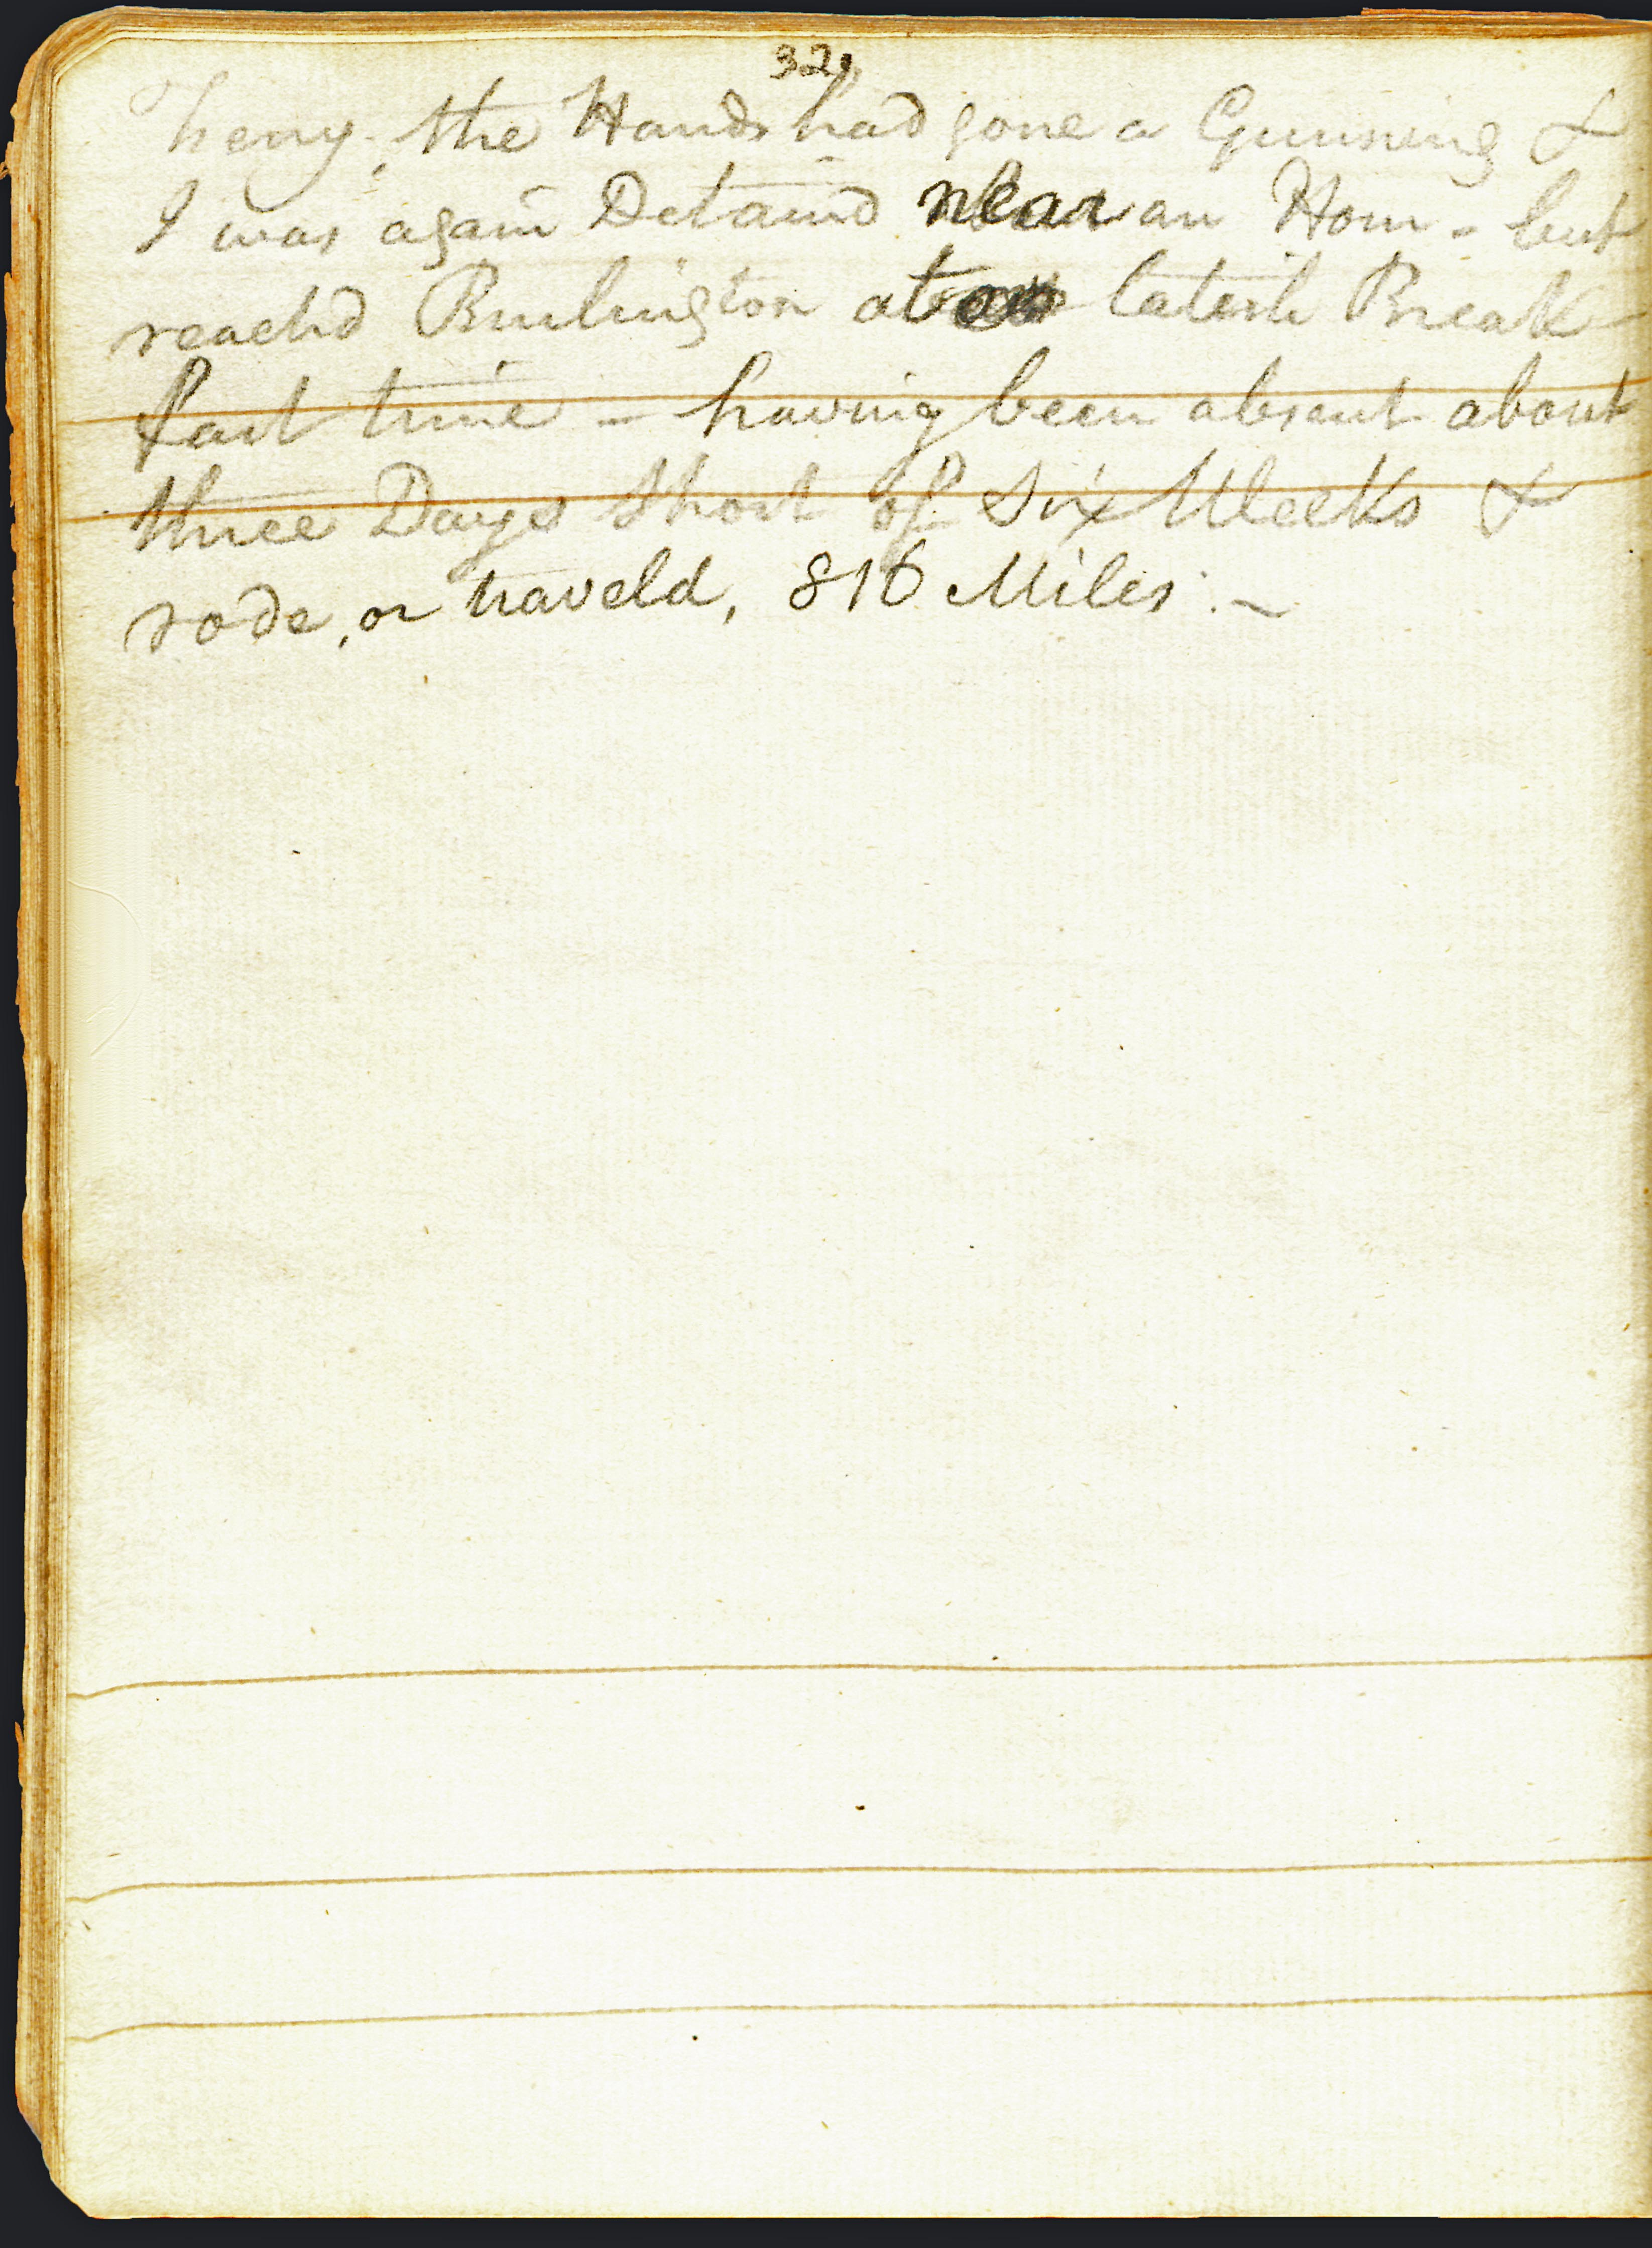 32,
heny; the Hands had gone a Gunning &
I was again Detaind near an Hour - but
reachd Burlington at latish Break
fast time - having been absent about
three Days Short of Six Weeks &
rode, or traveld, 816 Miles:~